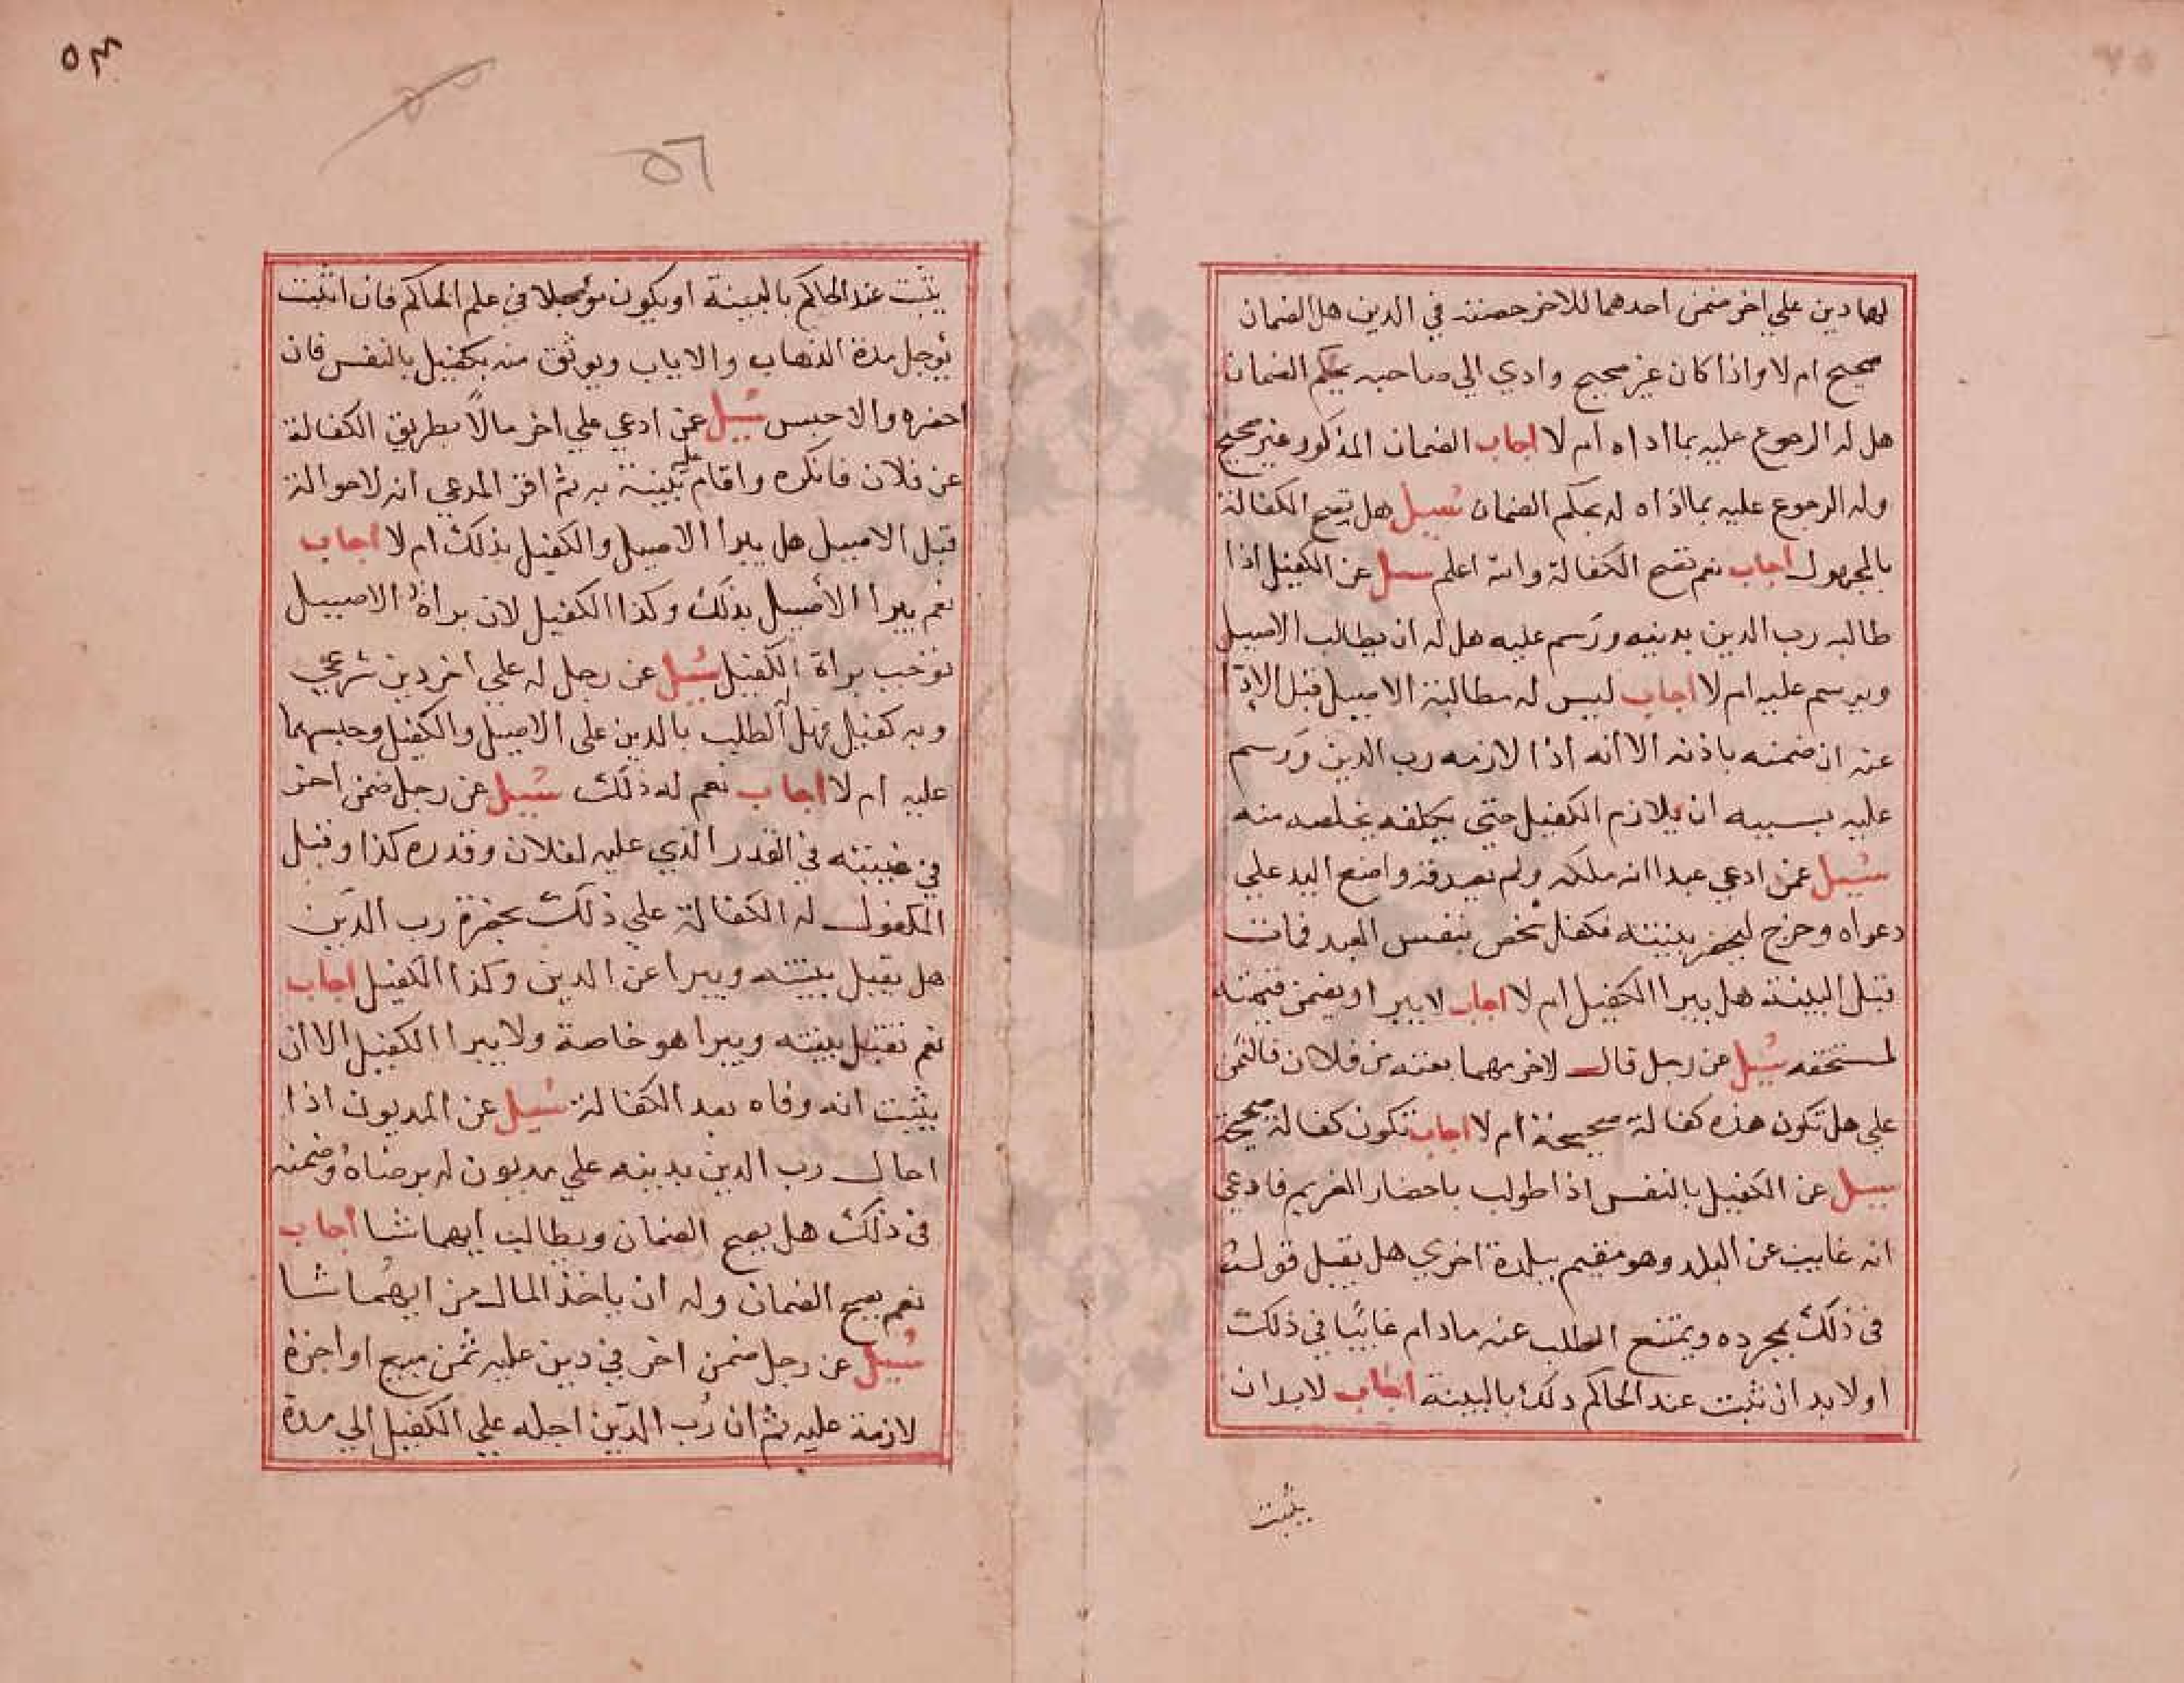 لهما دين علي اخر ضمن احدهما للاخر حصته في الدين هل الضمان
صحيح ام لا واذا كان غير صحيح وادي الي صاحبه بحكم الضمان
هل له الرجوع عليه بما اداه ام لا اجاب الضمان المذكور غير صحيح
وله الرجوع عليه بما اداه له بحكم الضمان سيل هل تصح الكفالة
بالمجهول اجاب نعم تصح الكفالة والله اعلم سيل عن الكفيل اذا
طالبه رب الدين بدينه ورسم عليه هل له ان يطالب الاصيل
ويرسم عليه ام لا اجاب ليس له مطالبة الاصيل قبل الادا
عنه ان ضمنه باذنه الا انه اذا لازمه رب الدين ورسم
عليه بسببه ان يلازم الكفيل حتي يخلصه منه
سيل عمن ادعي عبدا انه ملكه ولم يصدقه واضع اليد علي
دعواه وخرج ليحضر بينته فكفل شخص بنفس العبد فمات
قبل البينة هل يبرا الكفيل ام لا اجاب لا يبرا ويضمن قيمته
لمستحقه سيل عن رجل قال لاخر مهما بعته من فلان فالثمن
علي هل تكون هذه كفالة صحيحة ام لا اجاب تكون كفالة صحيحة
سيل عن الكفيل بالنفس اذا طولب باحضار الغريم فادعي
انه غايب عن البلد وهو مقيم ببلدة اخري هل يقبل قوله
في ذلك بمجرده ويمتنع الطلب عنه مادام غايبا في ذلك
او لابد ان يثبت عند الحاكم ذلك بالبينة اجاب لابد ان
يثبت
٥٣
٥٦
يثبت عند الحاكم بالبينة او يكون مؤجلا في علم الحاكم فان اثبت
يوجل مدة الذهاب والاياب ويوثق منه بكفيل بالنفس فان
احضره والا حبس سيل عن ادعي علي اخر مالا بطريق الكفالة
عن فلان فانكره واقام عليه بينة به ثم اقر المدعي انه لاحوالة
قبل الاصيل هل يبرا الاصيل والكفيل بذلك ام لا اجاب
نعم يبرا الأصيل بذلك وكذا الكفيل لان براة الاصيل
توجب براة الكفيل سيل عن رجل له علي اخر دين شرعي
وبه كفيل فهل الطلب بالدين علي الاصيل والكفيل وحبسهما
عليه ام لا اجاب نعم له ذلك سيل عن رجل ضمن اخر
في غيبته في القدر الذي عليه لفلان وقدره كذا وقبل
المكفول له الكفالة علي ذلك بحضرة رب الدين
هل يقبل بينته ويبرا عن الدين وكذا الكفيل اجاب
نعم تقبل بينته ويبرا هو خاصة ولا يبرا الكفيل الا ان
يثبت انه وفاه بعد الكفالة سيل عن المديون اذا
احال رب الدين بدينه علي مديون له برضاه وضمنه
في ذلك هل يصح الضمان ويطالب ايهما شا اجاب
نعم يصح الضمان وله ان ياخذ المال من ايهما شا
سيل عن رجل ضمن اخر في دين عليه ثمن مبيع او اجرة
لازمة عليه ثم ان رب الدين اجله علي الكفيل الي مدة